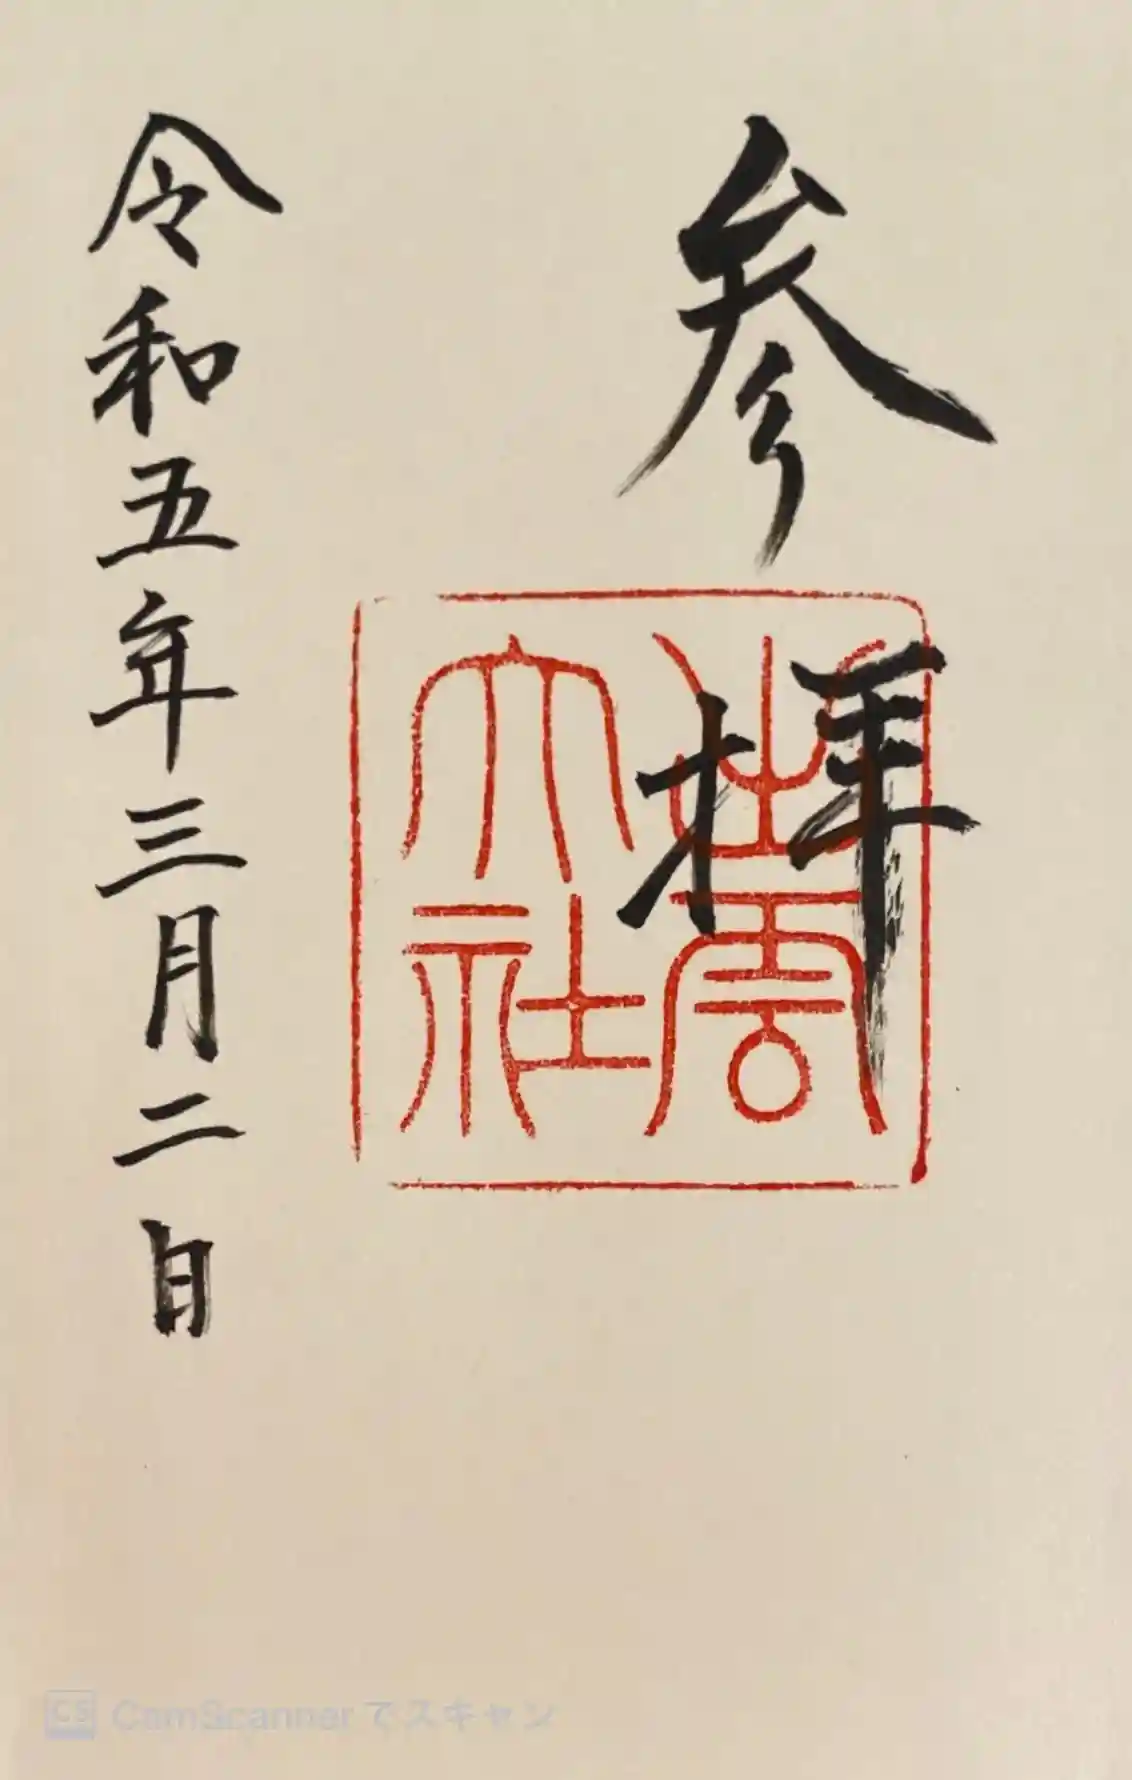 参拝
出雲大社
令和五年三月二日
CS CamScannerでスキャン